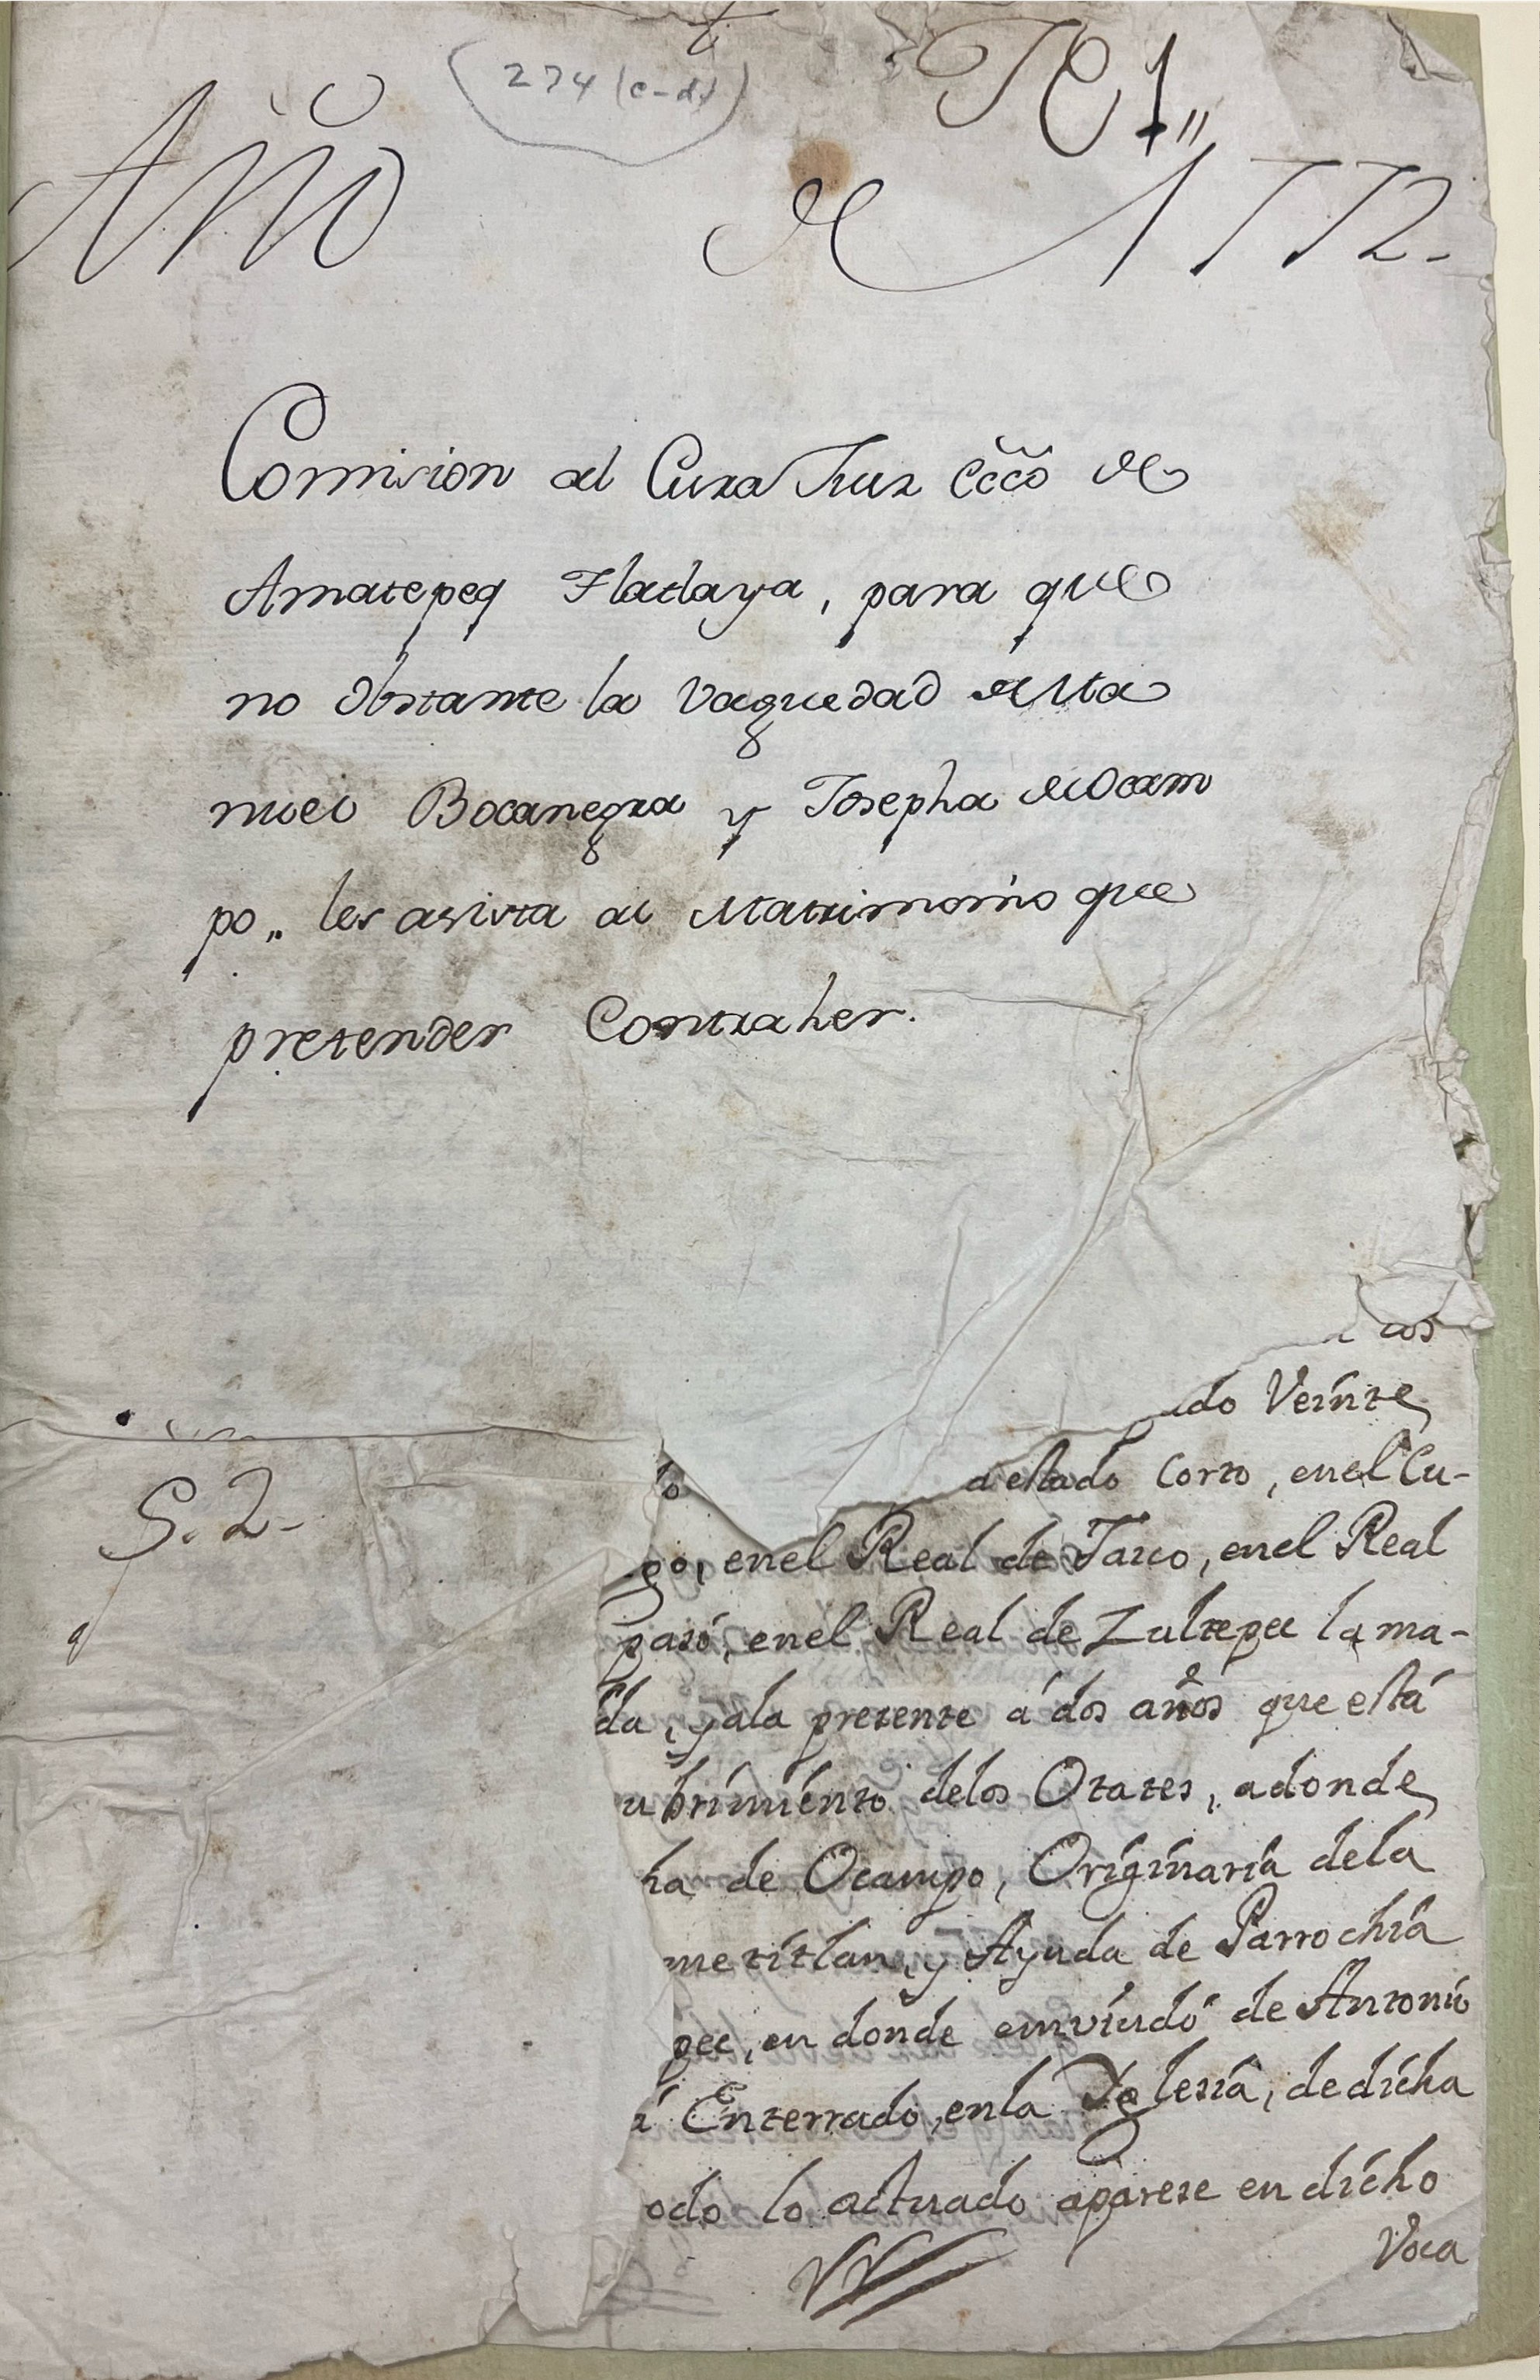 274 (c-d)
Año de 1772-
Comision al Cura Juez Ecc͞co de
Amatepeq Tlatlaya, para que
no Obstante la Vaguedad de Ma
nuel Bocanegra y Josepha de Ocam
po,, les asista al Matrimonio que
pretenden Contraher.
S. 2-
los
ado Veinte
a estado Corto, en el Cu-
go, en el Real de Tasco, en el Real
pasó, en el Real de Zultepec la ma-
da, y ala presente á dos años que está
ubrimiento delos Otates, adonde
ha de Ocampo, Originaria dela
metitlan, y Ayuda de Parrochia
pec, en donde enviudó de Antonio
á Enterrado, en la Iglesia, de dicha
odo lo actuado aparese en dicho
Voca